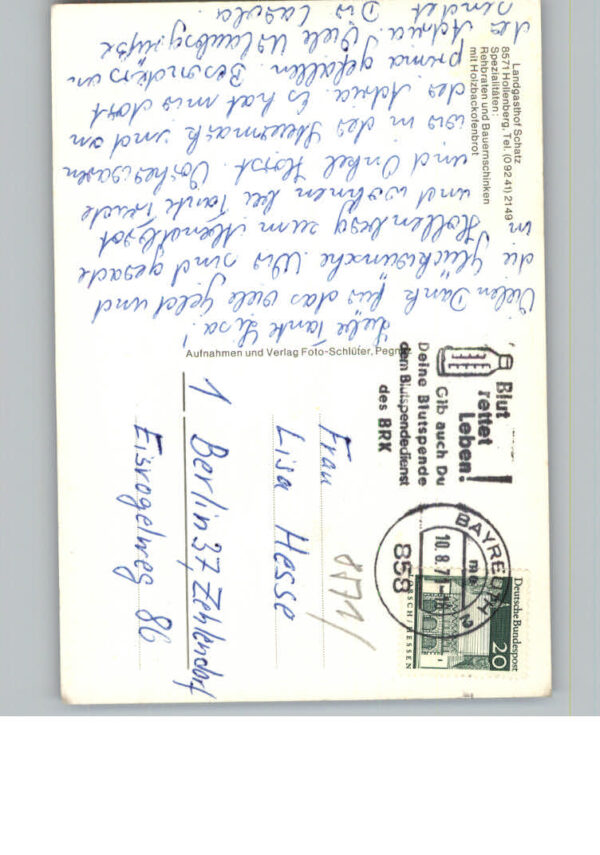 Landgasthof Schatz
8571 Hollenberg, Tel. (0 92 41) 21 49
Spezialitäten:
Rehbraten und Bauernschinken
mit Holzbackofenbrot
Liebe Tante Lisa!
Vielen Dank für das viele Geld und
die Glückwünsche. Wir sind gerade
in Hollenberg zum Abendbrot
und wohnen bei Tante Trude
und Onkel Horst. Vorher waren
wir in der Steiermark und an
der Adria. Es hat mir dort
prima gefallen. Besonders an
der Adria. Viele Urlaubsgrüße
sendet Dir
Aufnahmen und Verlag Foto-Schlüter, Pegnitz
Blut
rettet
Leben!
Gib auch Du
Deine Blutspende
dem Blutspendedienst
des BRK
BAYREUTH 2
10.8.7
858
Deutsche Bundespost
20
LORSCH/HESSEN
Frau
Lisa Hesse
1 Berlin 37, Zehlendorf
Eisvogelweg 86
8571/